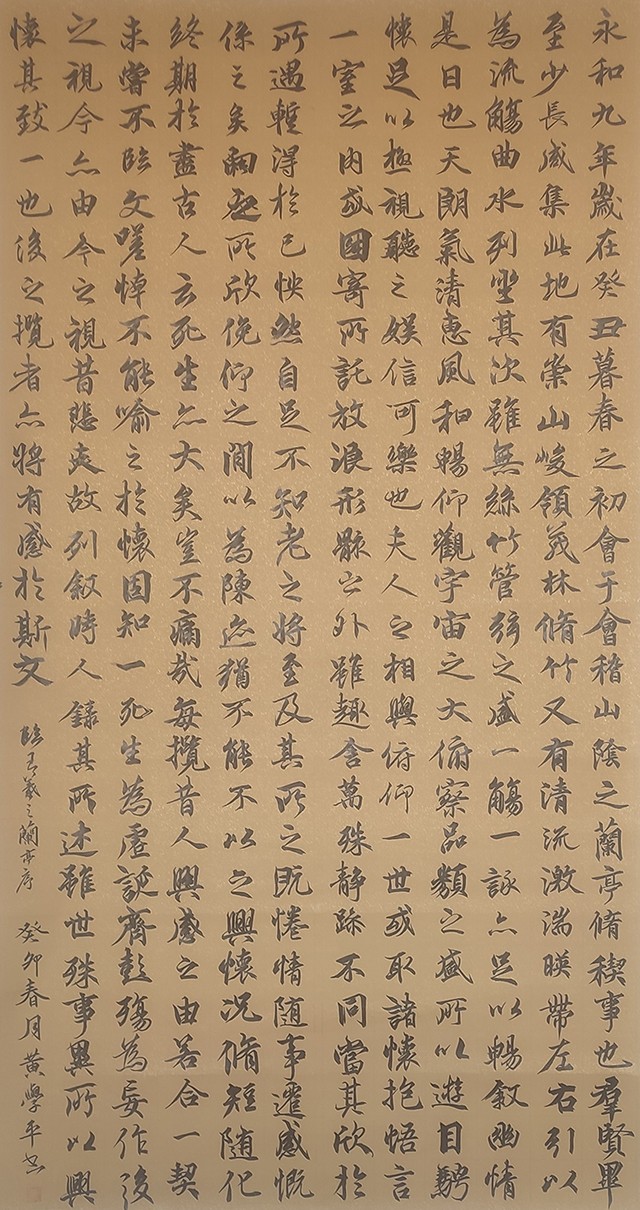 永和九年歲在癸丑暮春之初會于會稽山陰之蘭亭脩稧事也羣賢畢
至少長咸集此地有崇山峻領茂林脩竹又有清流激湍暎帶左右引以
為流觴曲水列坐其次雖無絲竹管弦之盛一觴一詠亦足以暢敘幽情
是日也天朗氣清惠風和暢仰觀宇宙之大俯察品類之盛所以遊目騁
懷足以極視聽之娛信可樂也夫人之相與俯仰一世或取諸懷抱悟言
一室之內或因寄所託放浪形骸之外雖趣舍萬殊静躁不同當其欣於
所遇暫得於己怏然自足不知老之將至及其所之既惓情随事遷感慨
係之矣向之所欣俛仰之閒以為陳迹猶不能不以之興懷況脩短随化
終期於盡古人云死生亦大矣豈不痛哉每攬昔人興感之由若合一契
未嘗不臨文嗟悼不能喻之於懷固知一死生為虛誕齊彭殤為妄作後
之視今亦由今之視昔悲夫故列敘時人錄其所述雖世殊事異所以興
懷其致一也後之攬者亦將有感於斯文
臨王羲之蘭亭序 癸卯春月黃學平書